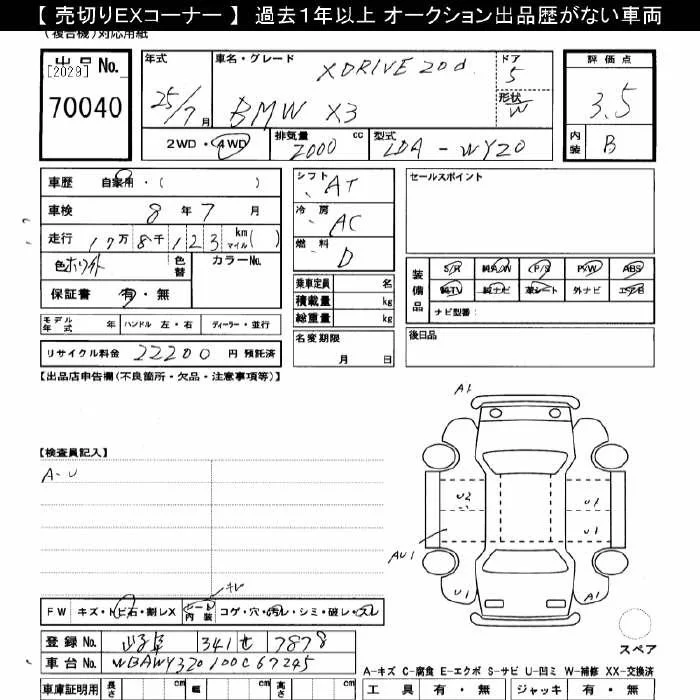 【 売切りEXコーナー 】 過去1年以上 オークション出品歴がない車両
(複合機)対応用紙
出品 No.
[2029]
70040
年式
25/7月
車名・グレード
XDRIVE20d
BMW X3
ドア
5
形状
W
評価点
3.5
内装
B
2WD・4WD
排気量
2000 cc
型式
LDA-WY20
車歴 自家用・( )
車検 8年7月
走行 17万8千123 km マイル( )
色 ホワイト 色替 カラーNo.
保証書 有・無
モデル年式 年 ハンドル 左・右 ディーラー・並行
リサイクル料金 22200 円 預託済
シフト
AT
冷房
AC
燃料
D
乗車定員 名
積載量 kg
総重量 kg
名変期限
月 日
セールスポイント
装備品
S/R 純A/W P/S P/W ABS
純TV 純ナビ 革シート 外ナビ エアB
ナビ型番:
後日品
【出品店申告欄(不良箇所・欠品・注意事項等)】
【検査員記入】
A-U
FW キズ・トビ石・割レX シート内装 コゲ・穴・汚レ・シミ・破レ・スレ
A1
U2
U1
U1
AU1
U1
U1
スペア
登録No. 341 せ 7878
車台No. WBAWY320100C67245
車庫証明用 長さ cm 幅 cm 高さ cm
A-キズ C-腐食 E-エクボ S-サビ U-凹ミ W-補修 XX-交換済
工具 有・無 ジャッキ 有・無